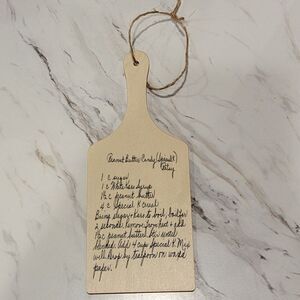 Peanut Butter Candy (Special K)
1 c sugar
1 c White Karo Syrup
1½ c peanut butter
4 c Special K Cereal
Bring sugar & Karo to boil, boil for
2 seconds. remove from heat & add
1½ c peanut butter. Stir until
blended. Add 4 cup Special K. Mix
well. Drop by teaspoon on waxed
paper.